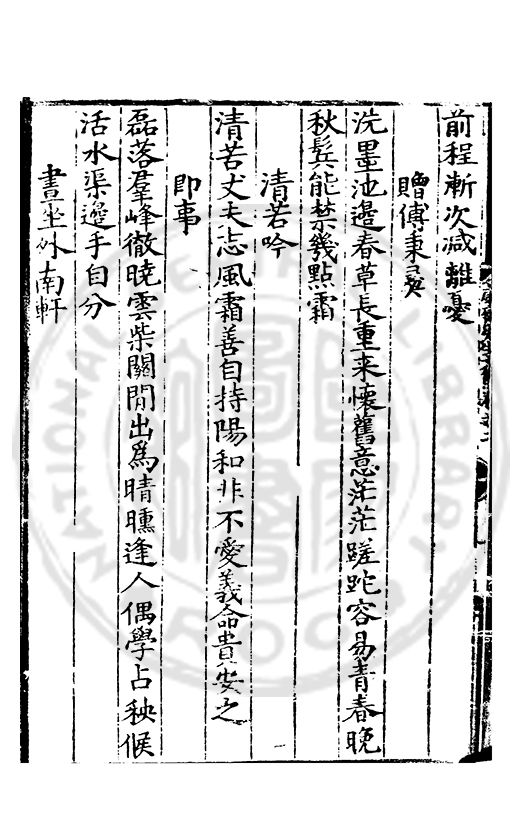 前程漸次减離憂
贈傅秉彝
洗墨池邉春草長重来懷舊意茫茫蹉跎容易青春晚
秋鬂能禁幾點霜
清苦吟
清苦丈夫志風霜善自持陽和非不愛義命貴安之
即事
磊落羣峰徹曉雲柴關閒出爲晴曛逢人偶學占秧候
活水渠邉手自分
晝坐外南軒